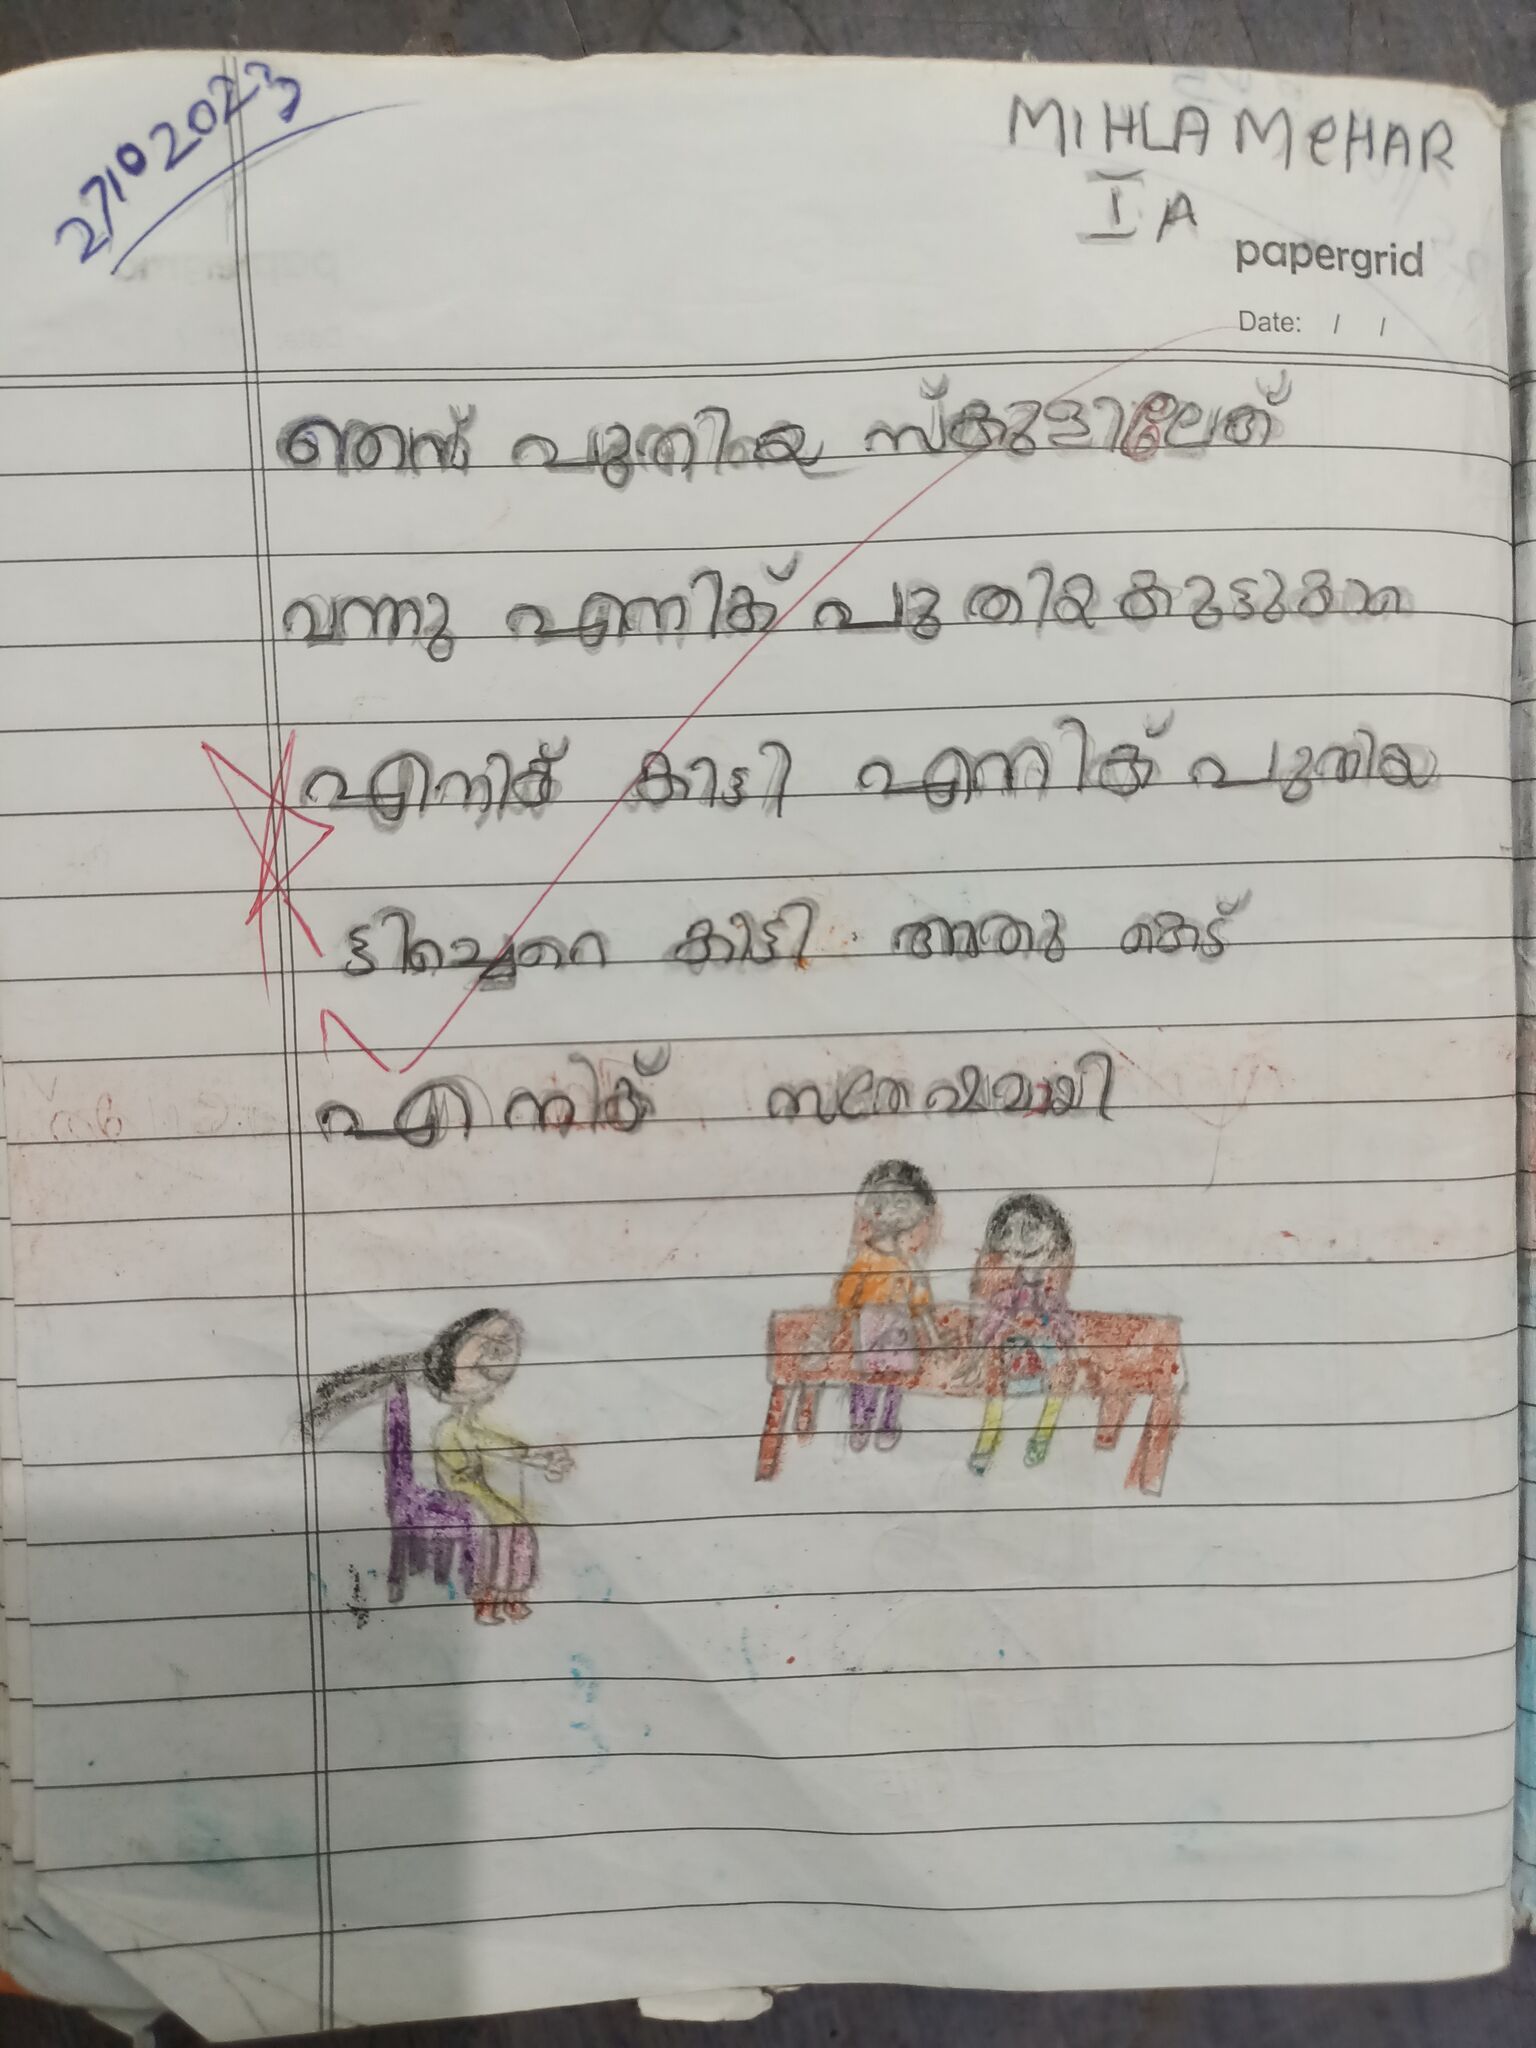 27 10 2023
MIHLA MeHAR
I A
papergrid
Date: / /
ഞന്ന് പുതിയ സ്കുളിലേത്
വന്നു എന്നിക് പുതിയ കുട്ടുകാരെ
എന്നിക് കിട്ടി എന്നിക് പുതിയ
ട്ടിച്ചെറെ കിട്ടി അതു കെട്
എന്നിക് സതേഷമായി